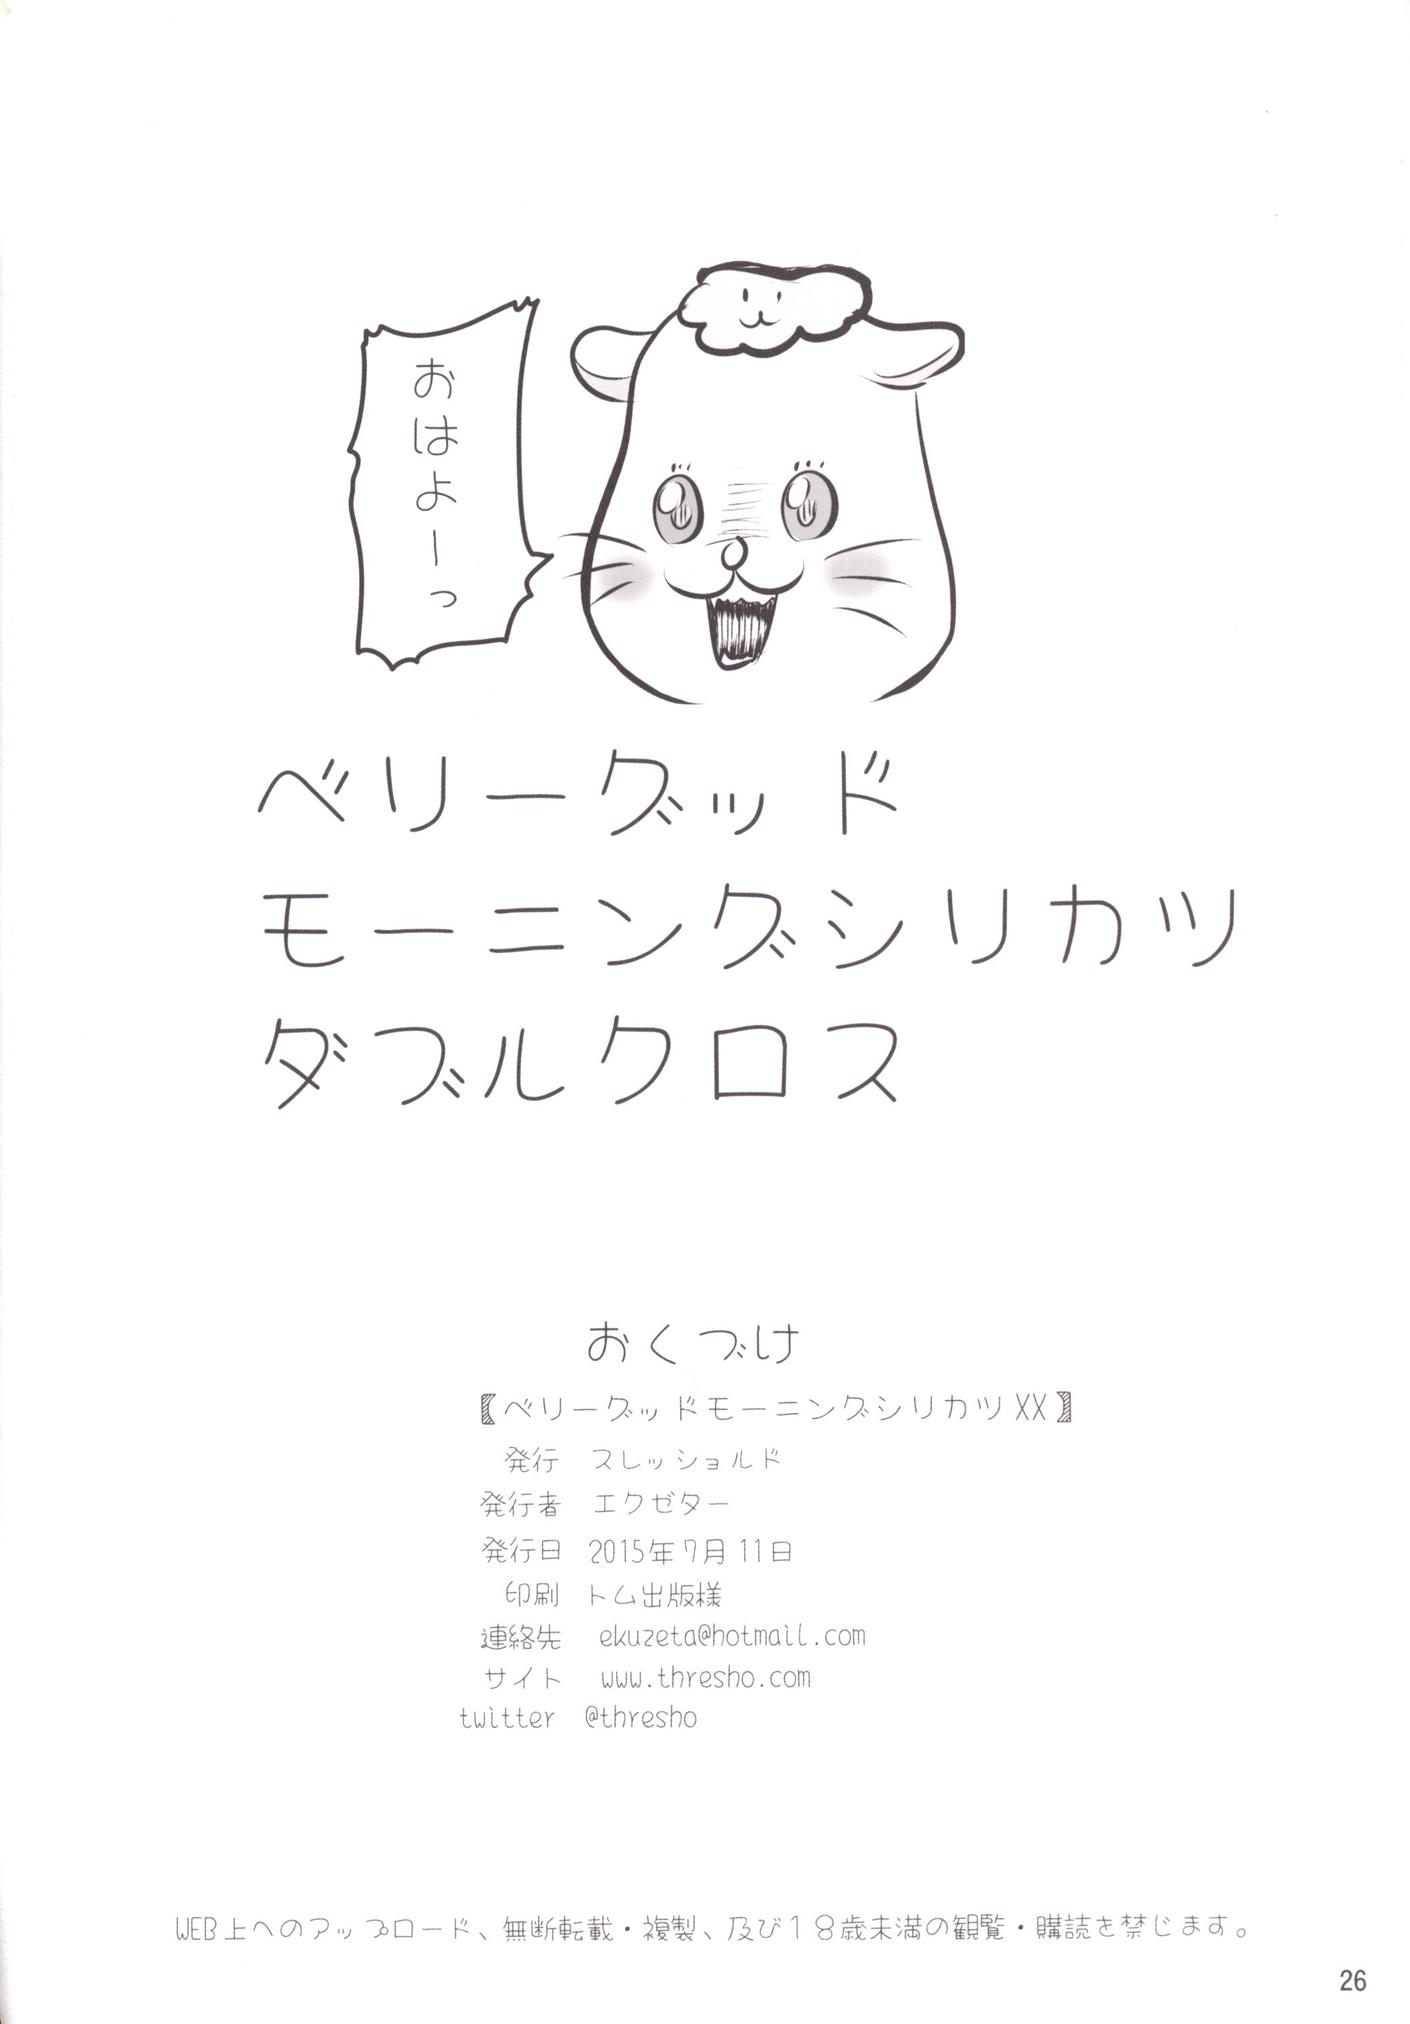 おはよーっ
ベリーグッド
モーニングシリカツ
ダブルクロス
おくづけ
【ベリーグッドモーニングシリカツXX】
発行 スレッショルド
発行者 エクゼター
発行日 2015年7月11日
印刷 トム出版様
連絡先 ekuzeta@hotmail.com
サイト www.thresho.com
twitter @thresho
WEB上へのアップロード、無断転載・複製、及び18歳未満の観覧・購読を禁じます。
26